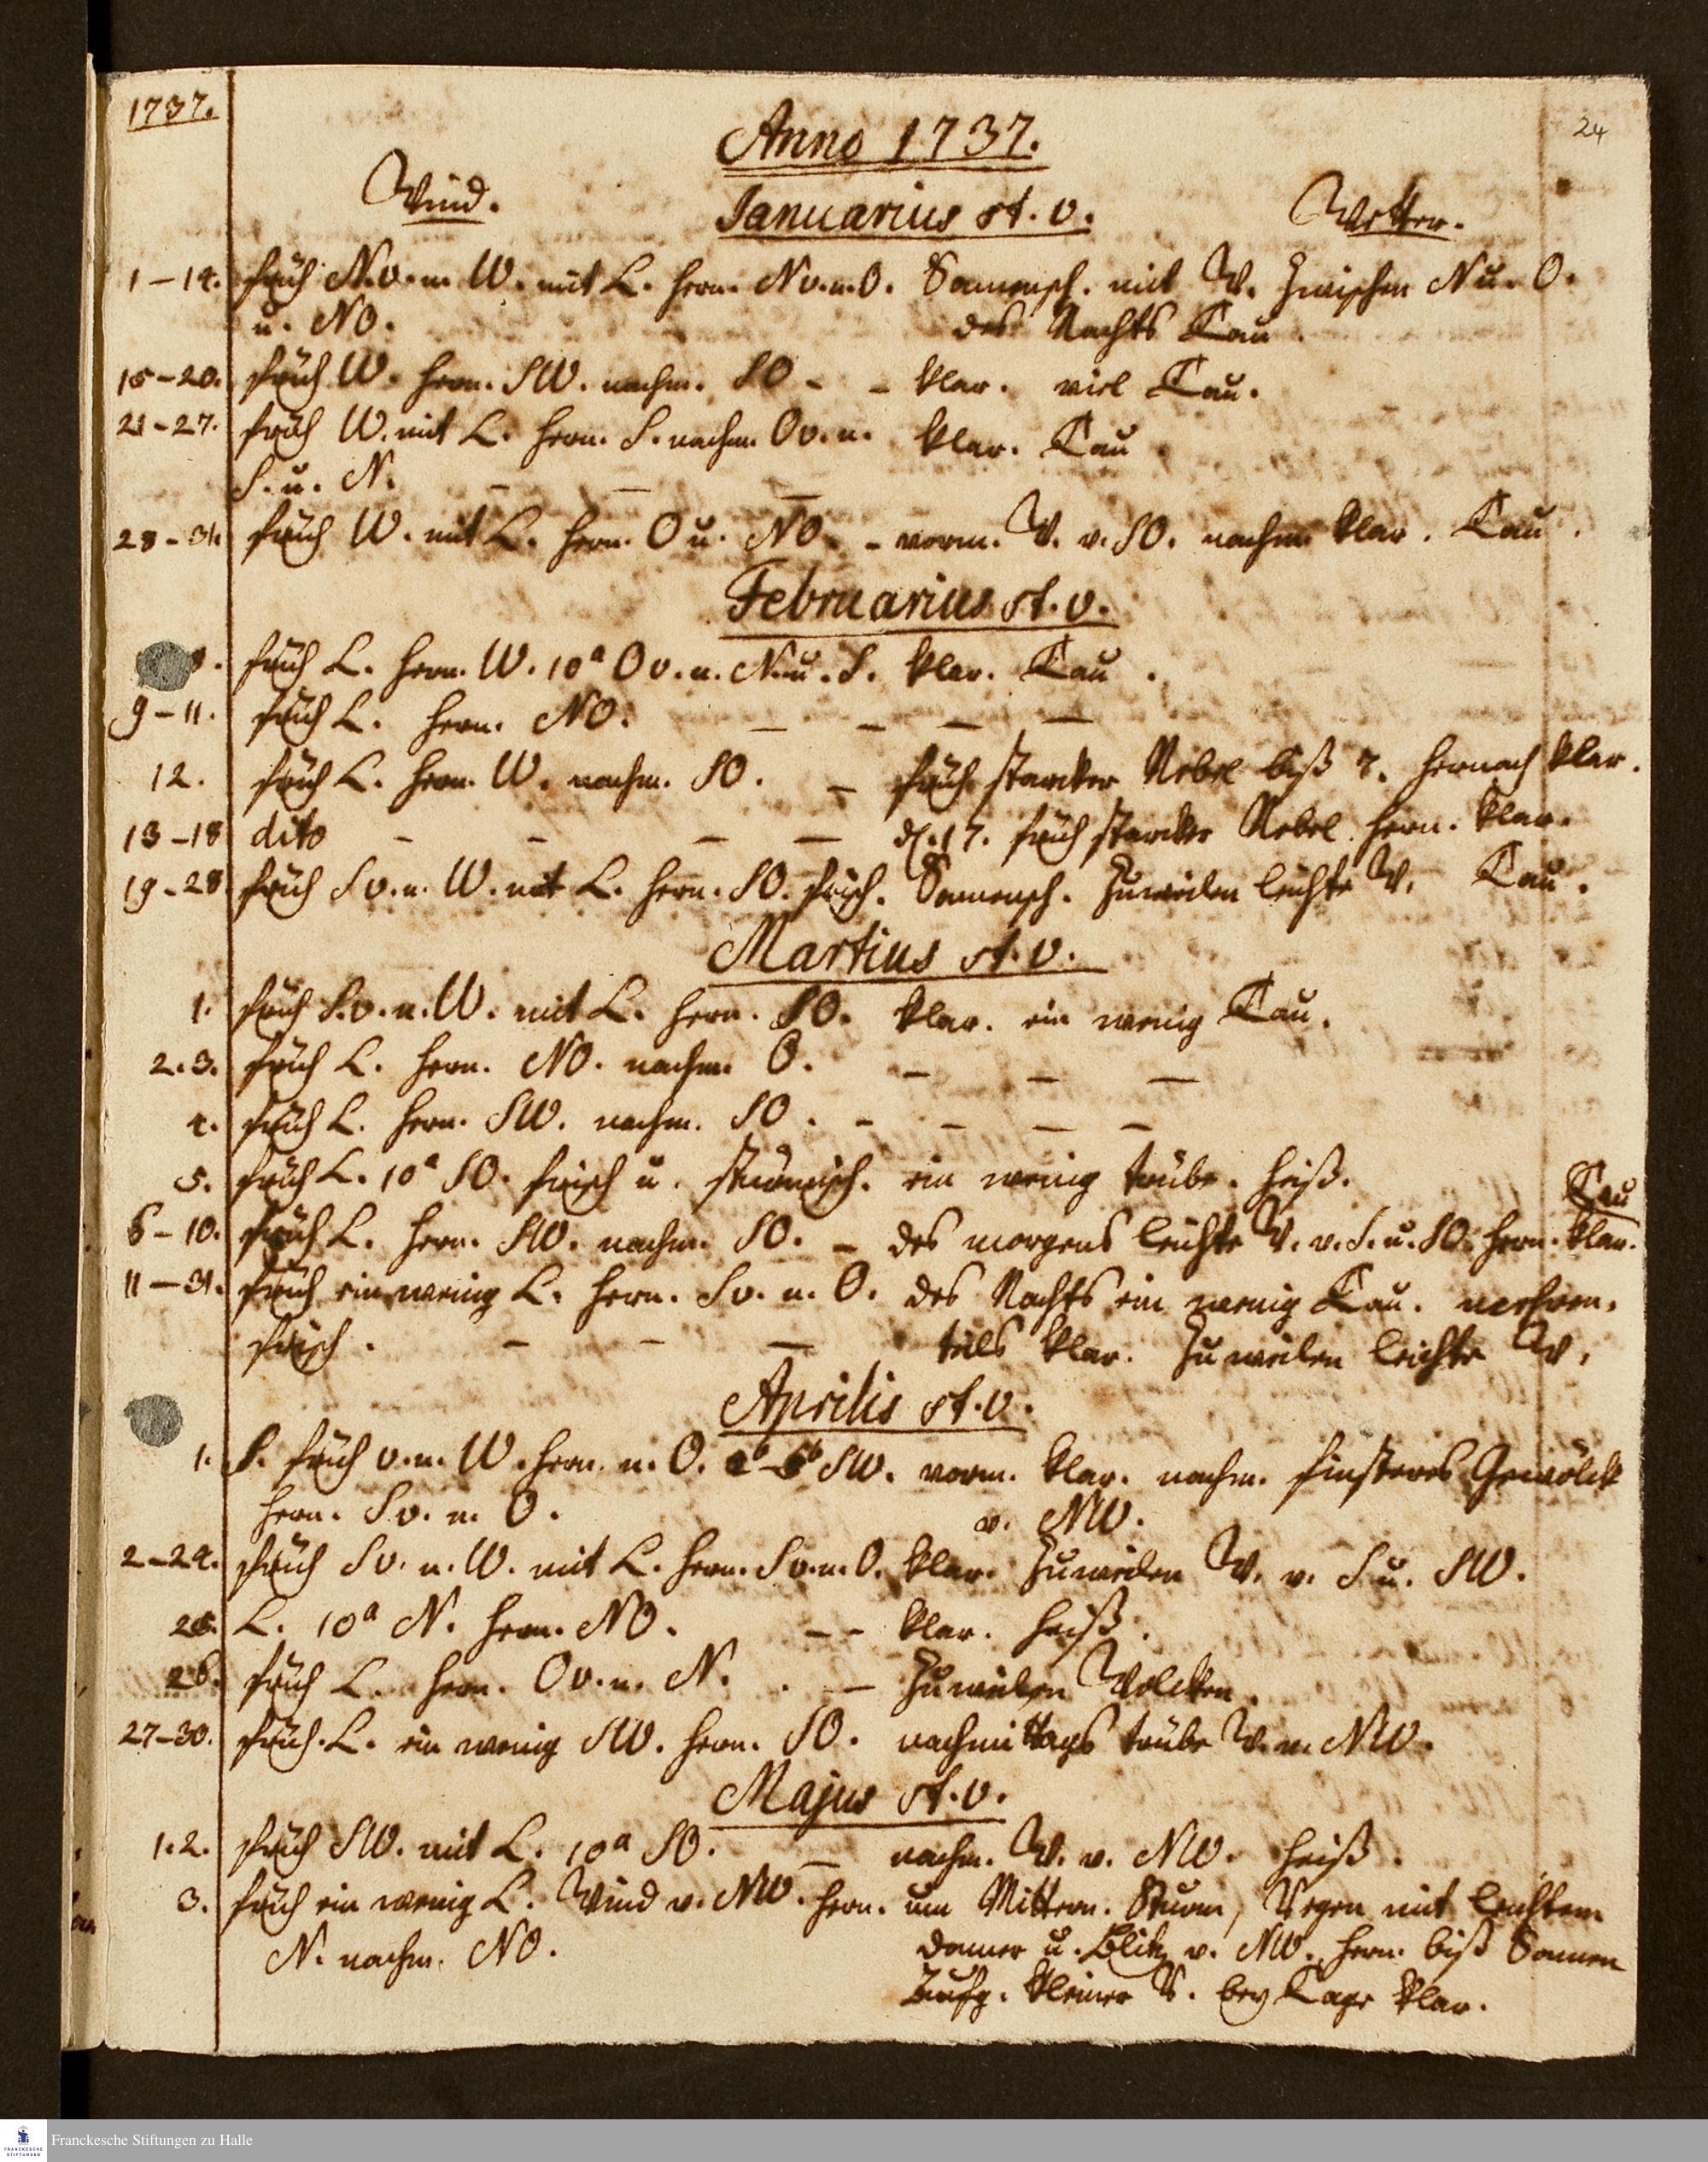 1737.
24
Anno 1737.
Wind.
Januarius st. v.
Wetter.
1-14. früh N. v. n. W. mit L. hern. N v. n. O. Sonnensch. mit W. Zwischen N u. O.
u. NO. des Nachts Tau.
15-20. früh W. hern. SW. nachm. SO - - klar. viel Tau.
21-27. früh W. mit L. hern. S. nachm. O v. n. klar. Tau.
S. u. N. - - -
28-31. früh W. mit L. hern. O u. NO. - vorm. W. v. SO. nachm. klar. Tau.
Februarius st. v.
8. früh L. hern. W. 10a O v. n. N. u. S. klar. Tau.
9-11. früh L. hern. NO. - - - -
12. früh L. hern. W. nachm. SO. - früh starcker Nebel biß 7. hernach klar.
13-18 dito - - - - d. 17. früh starcker Nebel hern. klar.
19-28. früh S v. n. W. mit L. hern. SO. frisch. Sonnensch. Zuweilen leichte W. Tau.
Martius st. v.
1. früh S. v. n. W. mit L. hern. SO. klar. ein wenig Tau.
2.3. früh L. hern. NO. nachm. O. - - -
4. früh L. hern. SW. nachm. SO. - - - -
5. früh L. 10a SO. frisch u. stürmisch. ein wenig trübe. heiß.
Tau
6-10. früh L. hern. SW. nachm. SO. - des morgens leichte W. v. S. u. SO. hern. klar.
11-31. früh ein wenig L. hern. S v. n. O. des Nachts ein wenig Tau. mehren,
frisch. - - - teils klar. Zuweilen leichte W.
Aprilis st. v.
1. S. früh v. n. W. hern. n. O. SW. vorm. klar. nachm. finsteres Gewölck
hern. S v. n. O. v. NW.
2-24. früh S v. n. W. mit L. hern. S v. n. O. klar. Zuweilen W. v. S u. SW.
25. L. 10a N. hern. NO. - - klar. heiß.
26. früh L. hern. O v. n. N. - Zuweilen Wolcken.
27-30. früh L. ein wenig SW. hern. SO. nachmittags trübe W. v. NW.
Majus st. v.
1.2. früh SW. mit L. 10a SO. - nachm. W. v. NW. heiß.
3. früh ein wenig L. Wind v. NW. hern. um Mittern. Sturm, Regen mit leichtem
N. nachm. NO. Donner u. Blitz v. NW. hern. biß Sonnen
Aufg. kleiner R. bey Tage klar.
Franckesche Stiftungen zu Halle